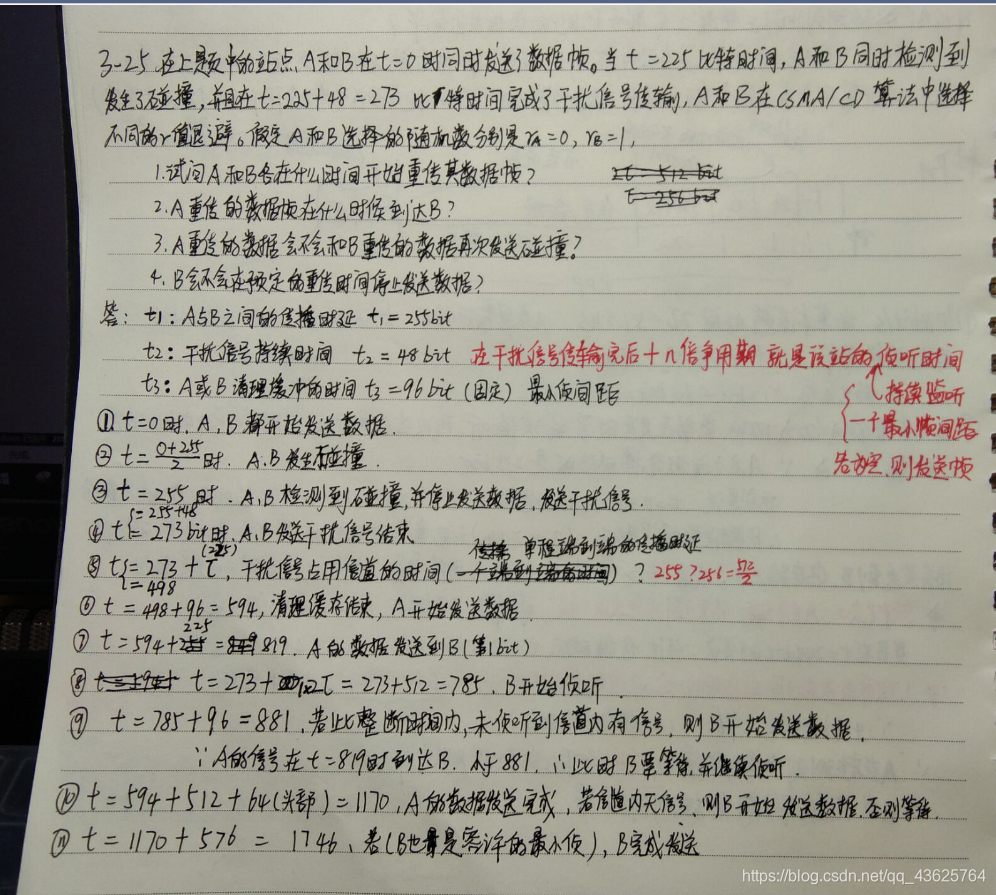 3-25 在上题中的站点A和B在t=0时同时发送了数据帧。当t=225比特时间,A和B同时检测到
发生了碰撞,并且在t=225+48=273比特时间完成了干扰信号传输,A和B在CSMA/CD算法中选择
不同的r值退避。假定A和B选择的随机数分别是rA=0,rB=1,
1.试问A和B各在什么时间开始重传其数据帧?
2t=512bit
t=256bit
2.A重传的数据帧在什么时候到达B?
3.A重传的数据会不会和B重传的数据再次发送碰撞?
4.B会不会在预定的重传时间停止发送数据?
答: t1:A与B之间的传播时延 t1=255bit
t2:干扰信号持续时间 t2=48bit 在干扰信号传输完后+n倍争用期 就是该站的侦听时间
t3:A或B清理缓冲的时间 t3=96bit(固定) 最小侦间距
持续监听
一个最小帧间距
若为空,则发送帧
① t=0时.A、B都开始发送数据.
② t=(0+255)/2时.A.B发生碰撞.
③ t=255时.A、B检测到碰撞,并停止发送数据,发送干扰信号.
=255+48
④ t=273bit时.A、B发送干扰信号结束
传播 单程端到端的传播时延
⑤ t=273+τ(225),干扰信号占用信道的时间(一个端到端) ? 255?256=512/2
=498
⑥ t=498+96=594,清理缓存结束,A开始发送数据.
⑦ t=594+225=819.A的数据发送到B(第1bit)
⑧ t=273+2τ=273+512=785.B开始侦听.
⑨ t=785+96=881.若此整断时间内,未侦听到信道内有信号,则B开始发送数据.
∵A的信号在t=819时到达B.小于881.∴此时B要等待,并继续侦听.
⑩ t=594+512+64(头部)=1170,A的数据发送完成,若信道内无信号、则B开始发送数据.否则等待.
⑪ t=1170+576=1746、若(B也是容许的最小侦),B完成发送
https://blog.csdn.net/qq_43625764